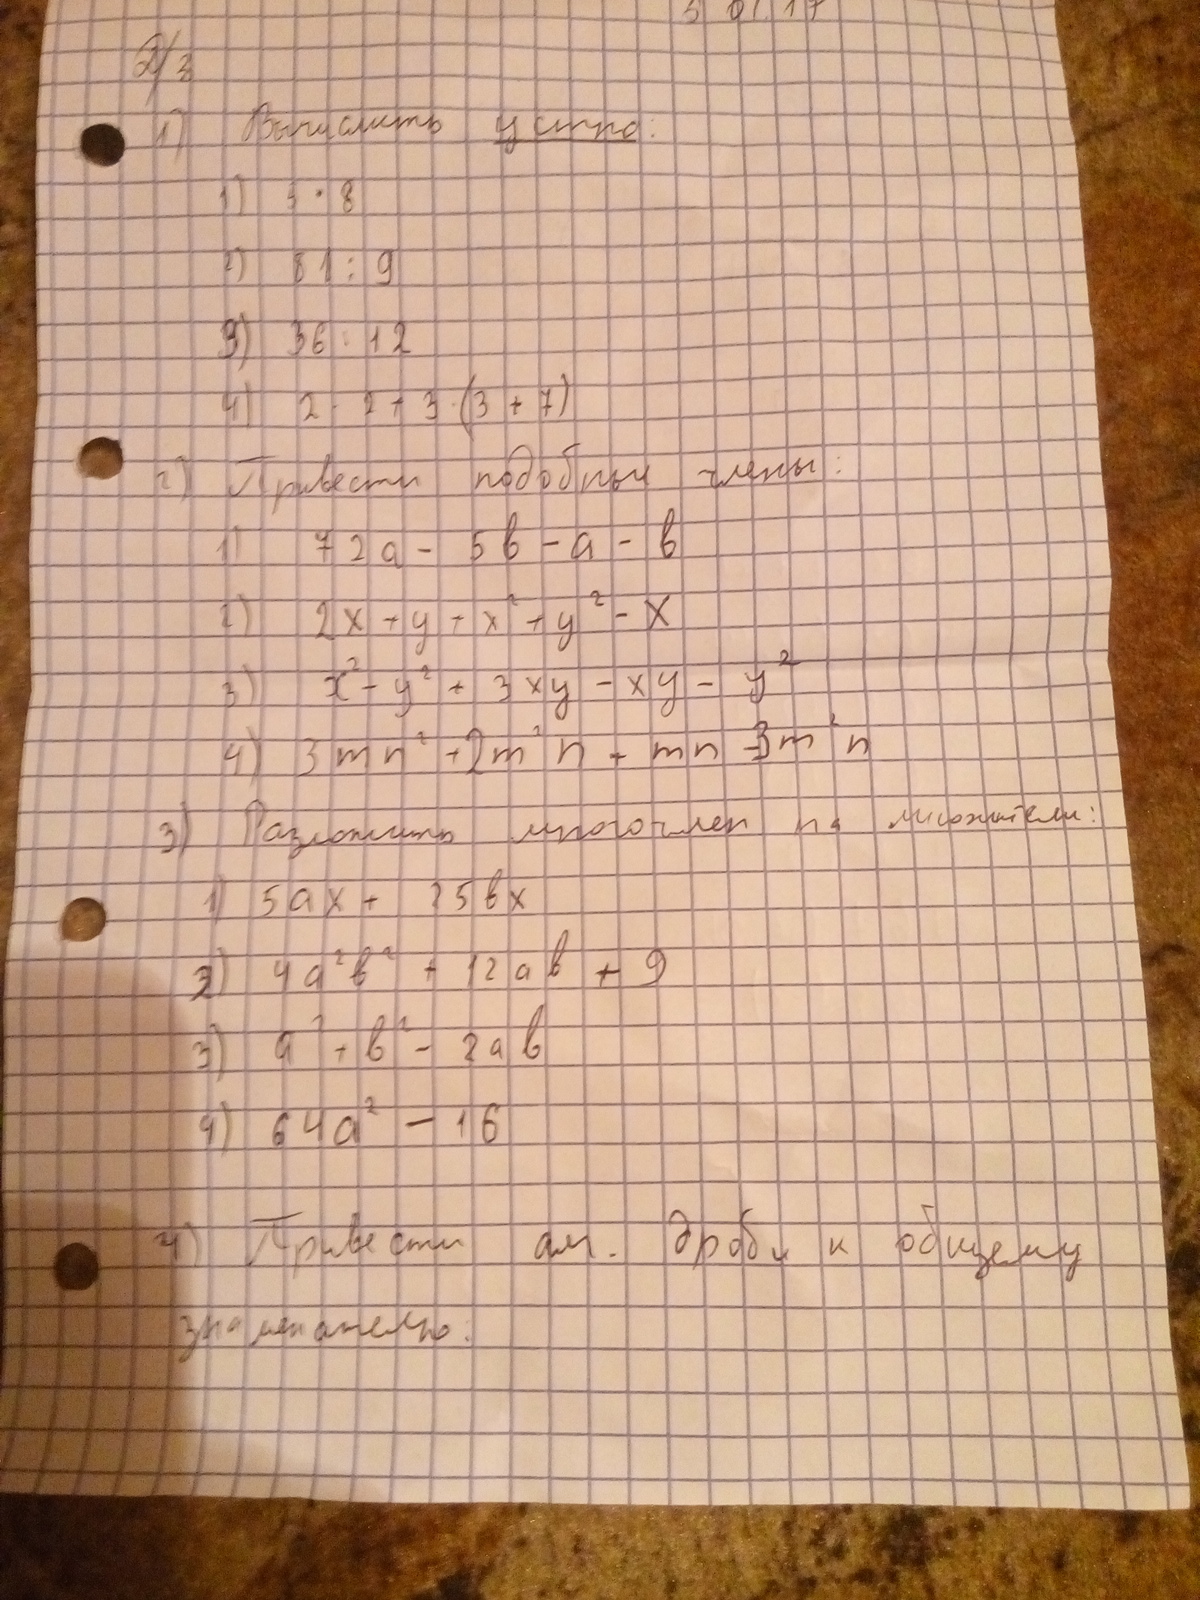 5 01.17
Д/з
1) Вычислить устно:
1) 5 · 8
2) 81 : 9
3) 36 : 12
4) 2 · 2 + 3 · (3 + 7)
2) Привести подобные члены:
1) 72a - 5b - a - b
2) 2x + y + x² + y² - x
3) x² - y² + 3xy - xy - y²
4) 3mn² + 2m²n + mn - 3m²n
3) Разложить многочлен на множители:
1) 5ax + 25bx
2) 4a²b² + 12ab + 9
3) a² + b² - 2ab
4) 64a² - 16
4) Привести ал. дроби к общему
знаменателю: